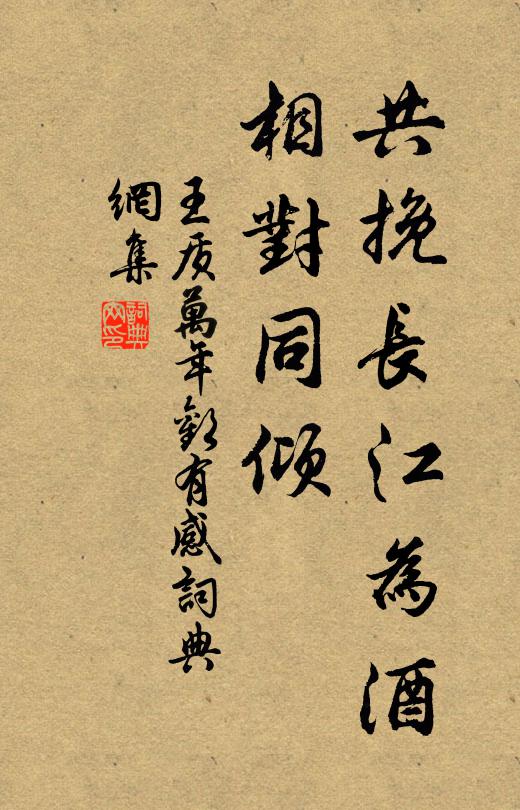 共挽長江為酒
相對同傾
王質萬年歡有感詞典
網集
詞典網印